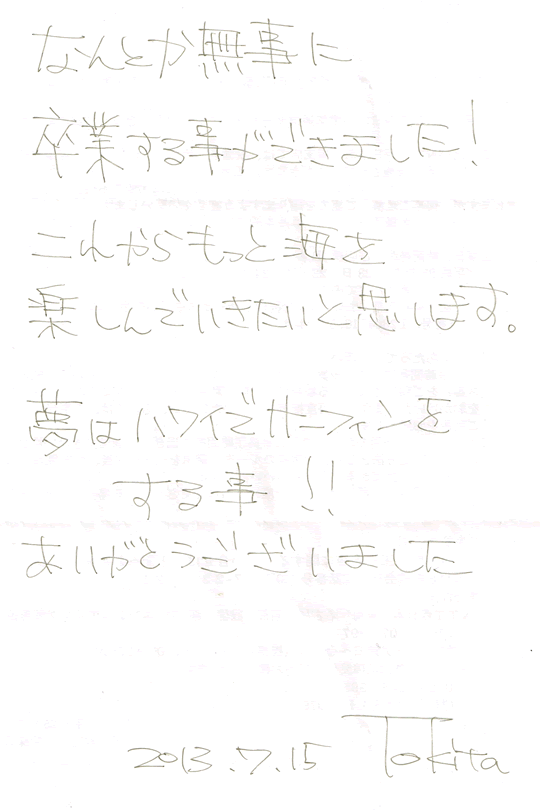 なんとか無事に
卒業する事ができました!
これからもっと海を
楽しんでいきたいと思います。
夢はハワイでサーフィンを
する事!!
ありがとうございました
2013.7.15 Tokita